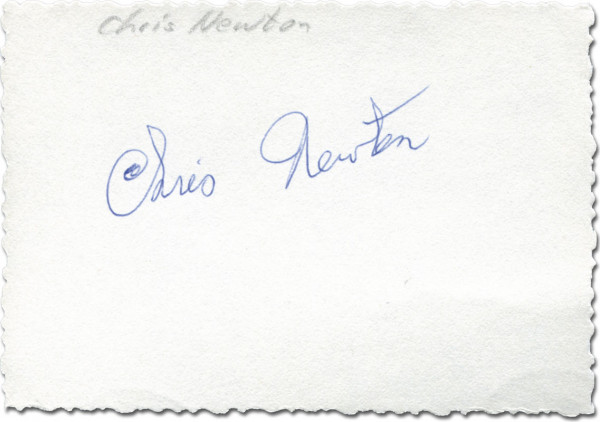 Chris Newton
Chris Newton